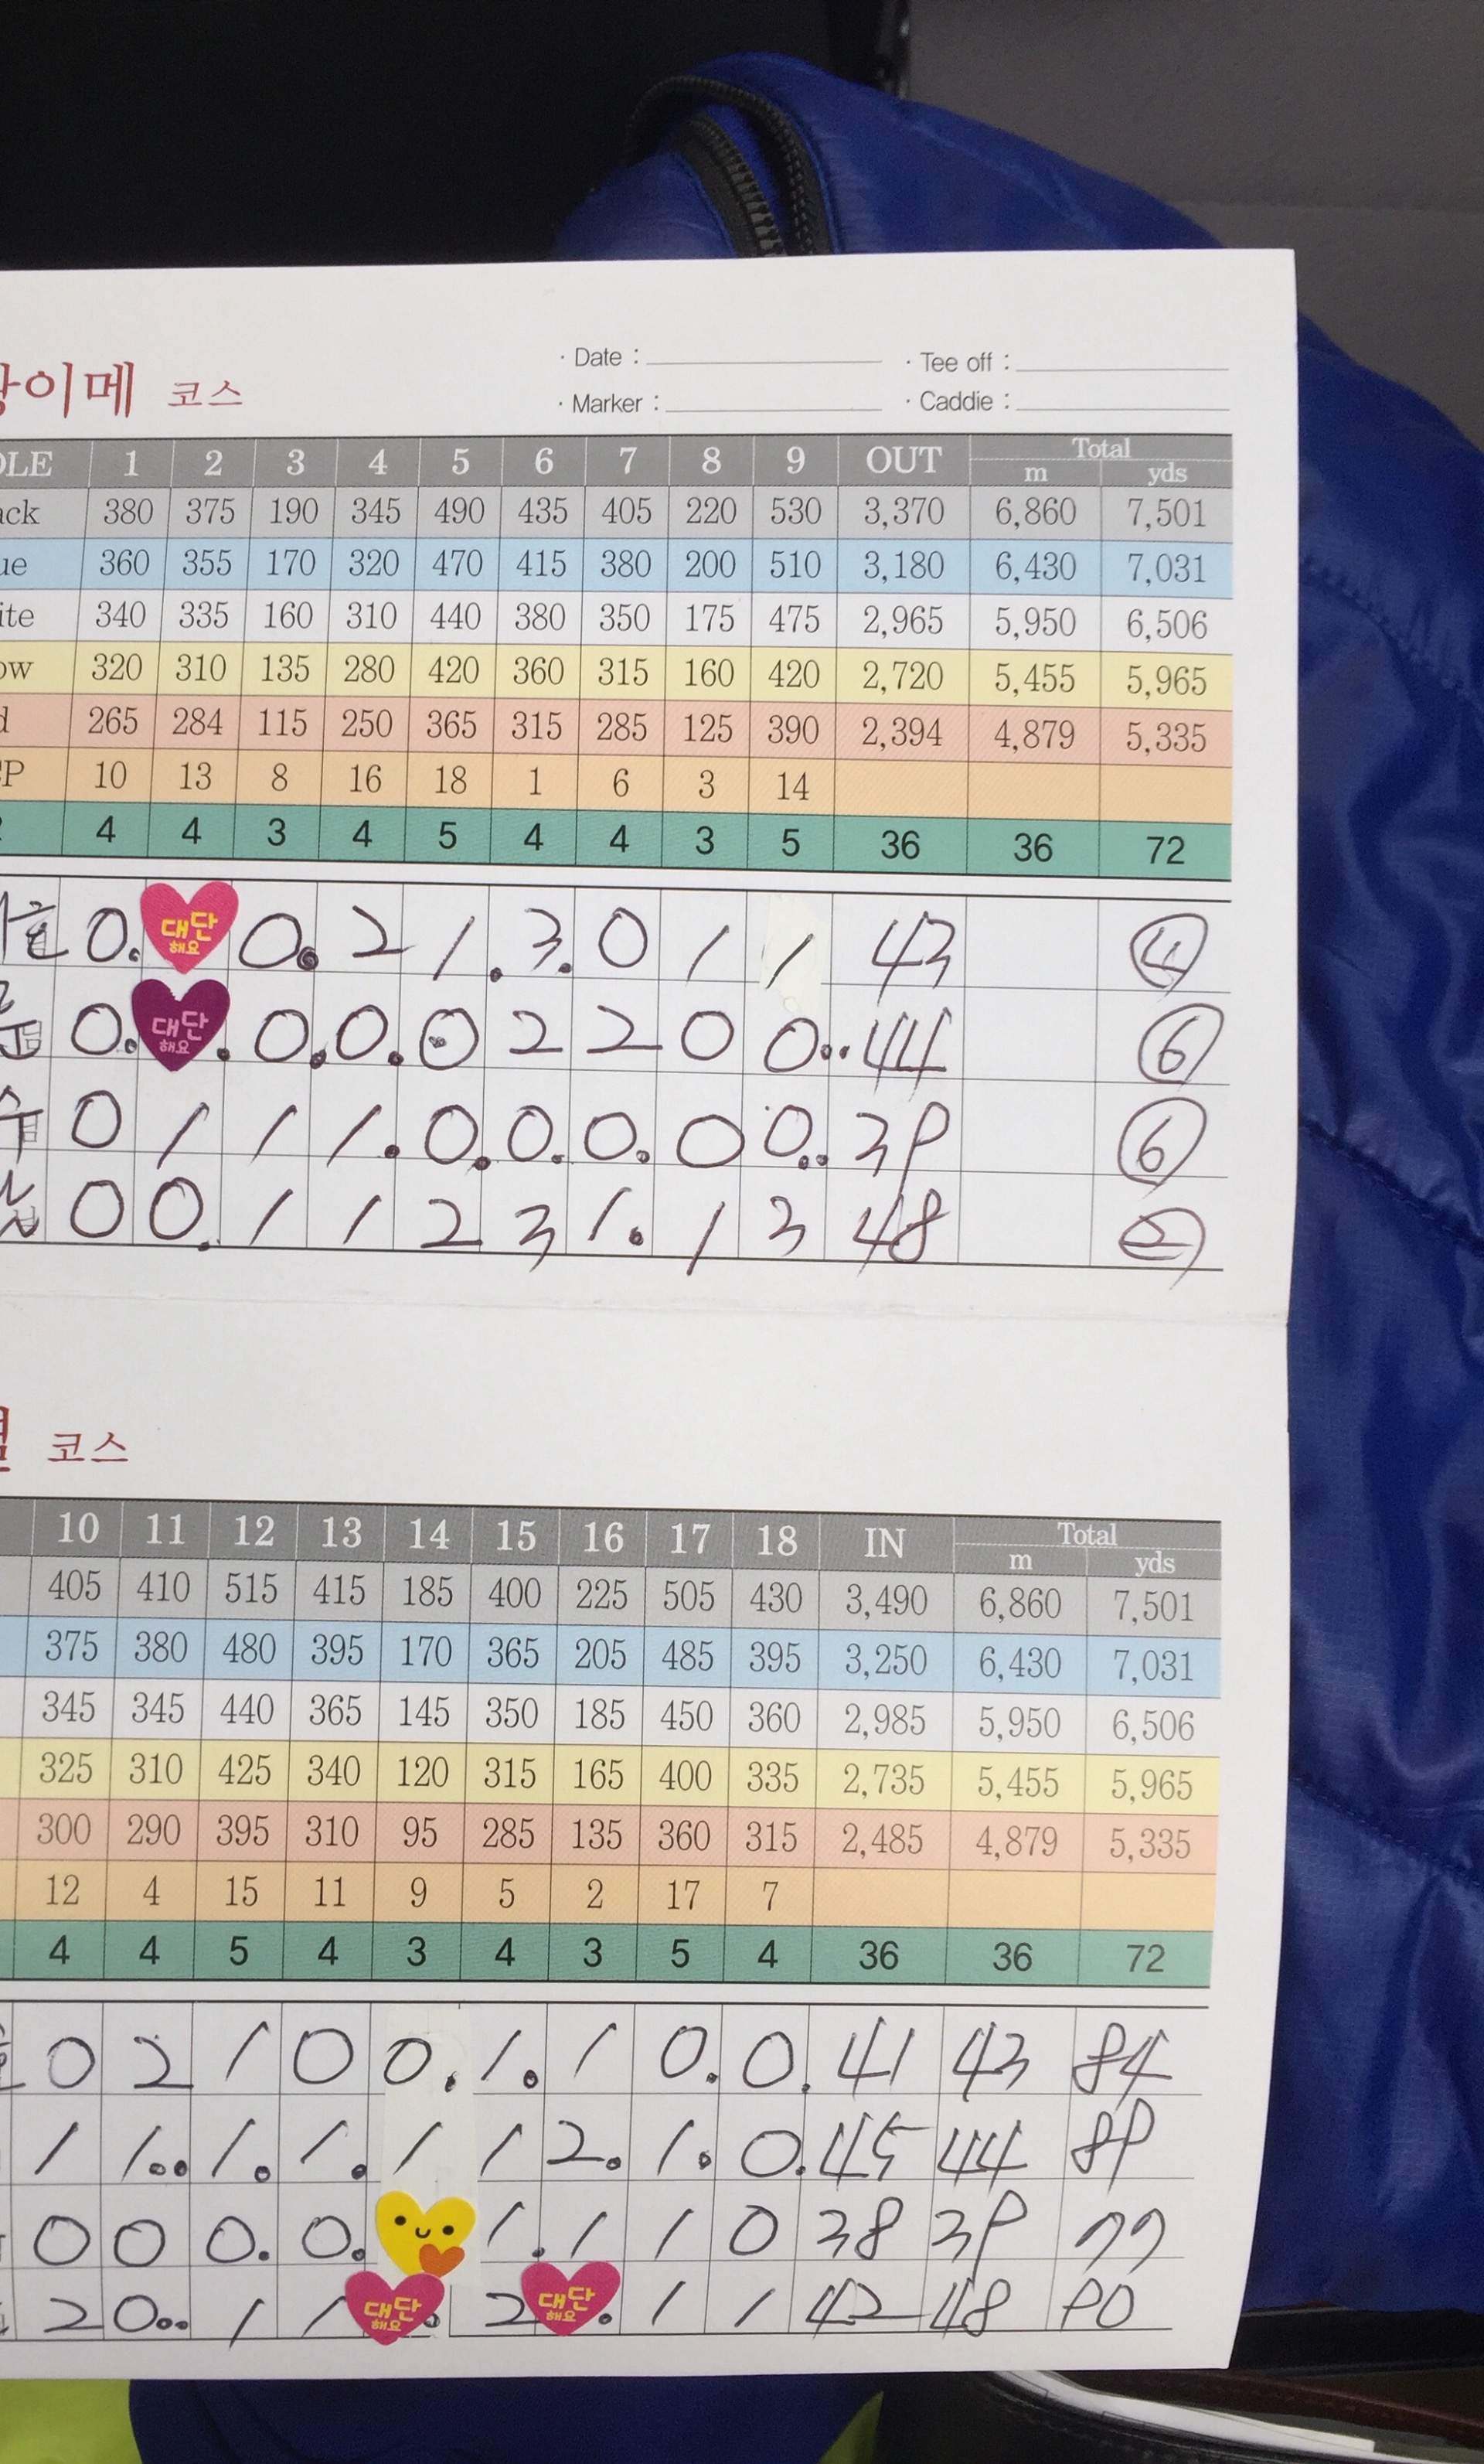 이메 코스
· Date : · Tee off :
· Marker : · Caddie :
OLE 1 2 3 4 5 6 7 8 9 OUT Total
m yds
ack 380 375 190 345 490 435 405 220 530 3,370 6,860 7,501
ue 360 355 170 320 470 415 380 200 510 3,180 6,430 7,031
ite 340 335 160 310 440 380 350 175 475 2,965 5,950 6,506
ow 320 310 135 280 420 360 315 160 420 2,720 5,455 5,965
d 265 284 115 250 365 315 285 125 390 2,394 4,879 5,335
P 10 13 8 16 18 1 6 3 14
4 4 3 4 5 4 4 3 5 36 36 72
0. 대단해요 0. 2 1. 3. 0 1 1 43 4
0. 대단해요. 0. 0. 0 2 2 0 0.. 44 6
0 1 1 1. 0. 0. 0. 0 0.. 39 6
0 0. 1 1 2 3 1. 1 3 48 2
코스
10 11 12 13 14 15 16 17 18 IN Total
m yds
405 410 515 415 185 400 225 505 430 3,490 6,860 7,501
375 380 480 395 170 365 205 485 395 3,250 6,430 7,031
345 345 440 365 145 350 185 450 360 2,985 5,950 6,506
325 310 425 340 120 315 165 400 335 2,735 5,455 5,965
300 290 395 310 95 285 135 360 315 2,485 4,879 5,335
12 4 15 11 9 5 2 17 7
4 4 5 4 3 4 3 5 4 36 36 72
0 2 1 0 0. 1. 1 0. 0. 41 43 84
1 1.. 1. 1. 1 1 2. 1. 0. 45 44 89
0 0 0. 0. 1. 1 1 0 38 39 77
2 0.. 1 1 대단해요. 2 대단해요. 1 1 42 48 90